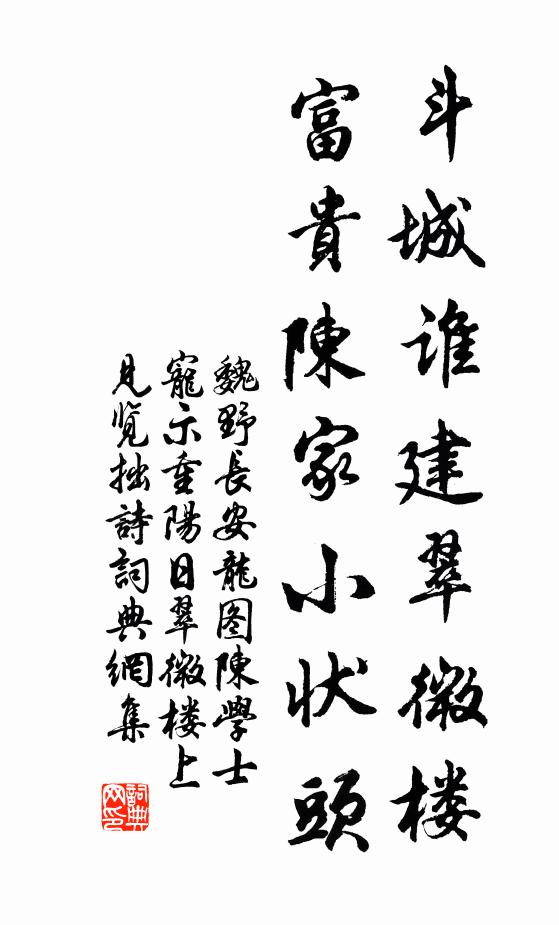 斗城谁建翠微楼
富貴陳家小状頭
魏野長安龍图陳學士
寵示重陽日翠微楼上
見覽拙詩詞典網集
詞典网印